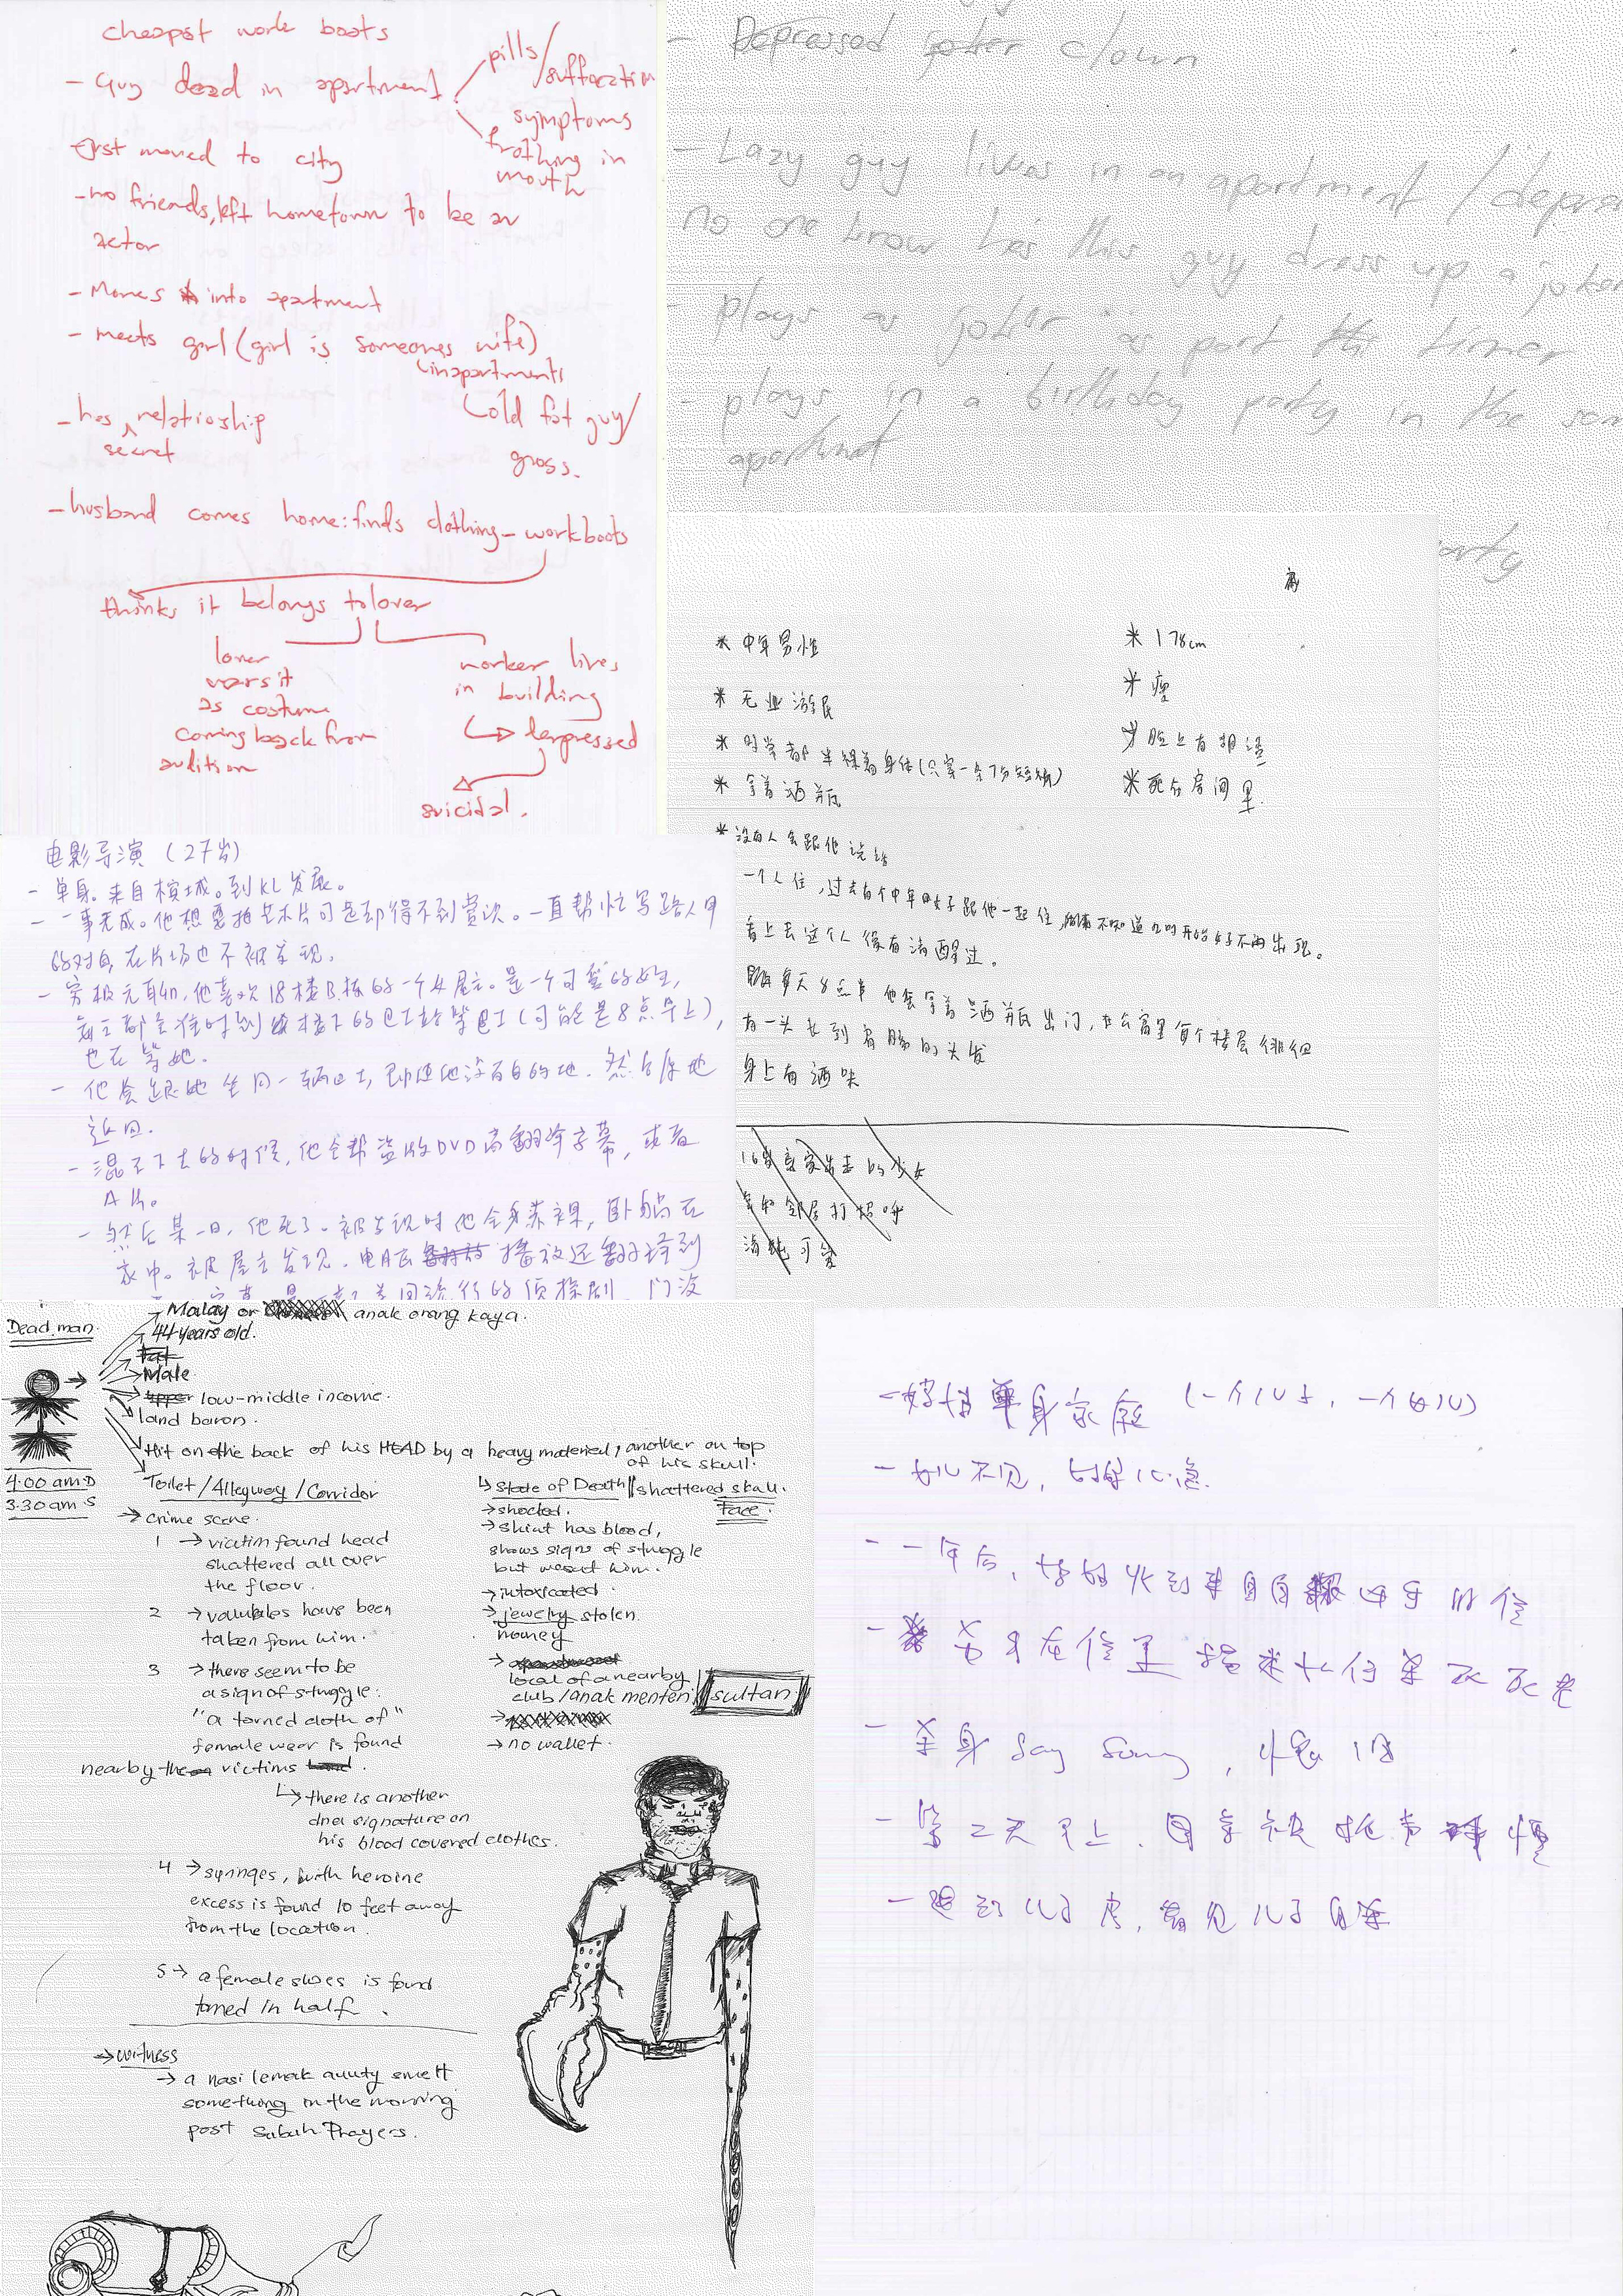 cheapst work boots
- Guy dead in apartment
pills/
suffocation
symptoms
frothing in
mouth
first moved to city
- no friends, left hometown to be an
actor
- Moves into apartment
- meets girl (girl is someones wife)
(in apartment)
old fat guy/
gross.
- has relatioship
secret
- husband comes home: finds clothing - workboots
thinks it belongs to lover
lover
wears it
as costume
coming back from
audition
worker lives
in building
depressed
suicidal.
- Depressed joker clown
- Lazy guy lives in an apartment /depre
no one know has this guy dress up a joker
- plays as joker as part timer
- plays in a birthday party in the sam
apartment
arty
* 中年男性
* 无业游民
* 时常都半裸着身体(只穿一条7分短裤)
* 拿着酒瓶
* 没有人会跟他说话
* 178cm
* 瘦
* 脸上有胡渣
* 死在房间里.
一个人住,过去有个中年女子跟他一起住,不知道几时开始女子不再出现。
看上去这个人没有清醒过。
每天8点半他会拿着酒瓶出门,在公寓里每个楼层徘徊
有一头长到肩膀的头发
身上有酒味
16岁离家出走的少女
邻居打招呼
清纯可爱
电影导演 (27岁)
- 单身。来自槟城。到KL发展。
- 一事无成。他想要拍艺术片可是却得不到赏识。一直帮忙写路人甲
的对白,在片场也不被发现。
- 穷极无聊,他喜欢18楼B栋的一个女屋主。是一个可爱的女生,
每天都会准时到楼下的巴士站等巴士(可能是8点早上),
他在等她。
- 他会跟她坐同一辆巴士,即使他没有目的地.然后原地
返回.
- 混不下去的时候,他会帮盗版DVD商翻译字幕,或者
A片。
- 然后某一日,他死了。被发现时他全身赤裸,卧躺在
家中。被屋主发现.电脑播放还翻译到
美国流行的侦探剧 门没
Dead man.
Malay or anak orang kaya.
44 years old.
Fat
Male
upper low-middle income.
land baron.
Hit on the back of his HEAD by a heavy material, another on top
of his skull.
4.00 am D
3.30 am S
Toilet / Alleyway / Corridor
→ crime scene.
1 → victim found head
shattered all over
the floor.
2 → valuables have been
taken from him.
3 → there seem to be
a sign of struggle.
"a torned cloth of"
female wear is found
nearby the victims
↳ there is another
dna signature on
his blood covered clothes.
4 → syringes, with heroine
excess is found 10 feet away
from the location.
5 → a female shoes is found
torned in half.
↳ State of Death // shattered skull.
Face.
→ shocked.
→ shirt has blood,
shows signs of struggle
but wasnt him.
→ intoxicated.
→ jewelry stolen
money
→ local of a nearby
club/anak menteri // sultan
→ no wallet.
→ witness
→ a nasi lemak aunty smelt
something in the morning
post Subuh Prayers.
- 单身家庭 (一个儿子, 一个女儿)
- 女儿不见,
- 一年后, 收到来自的信
- 在信里
- Say Sorry,
- 第二天早上.
- 儿子房, 看见儿子自杀